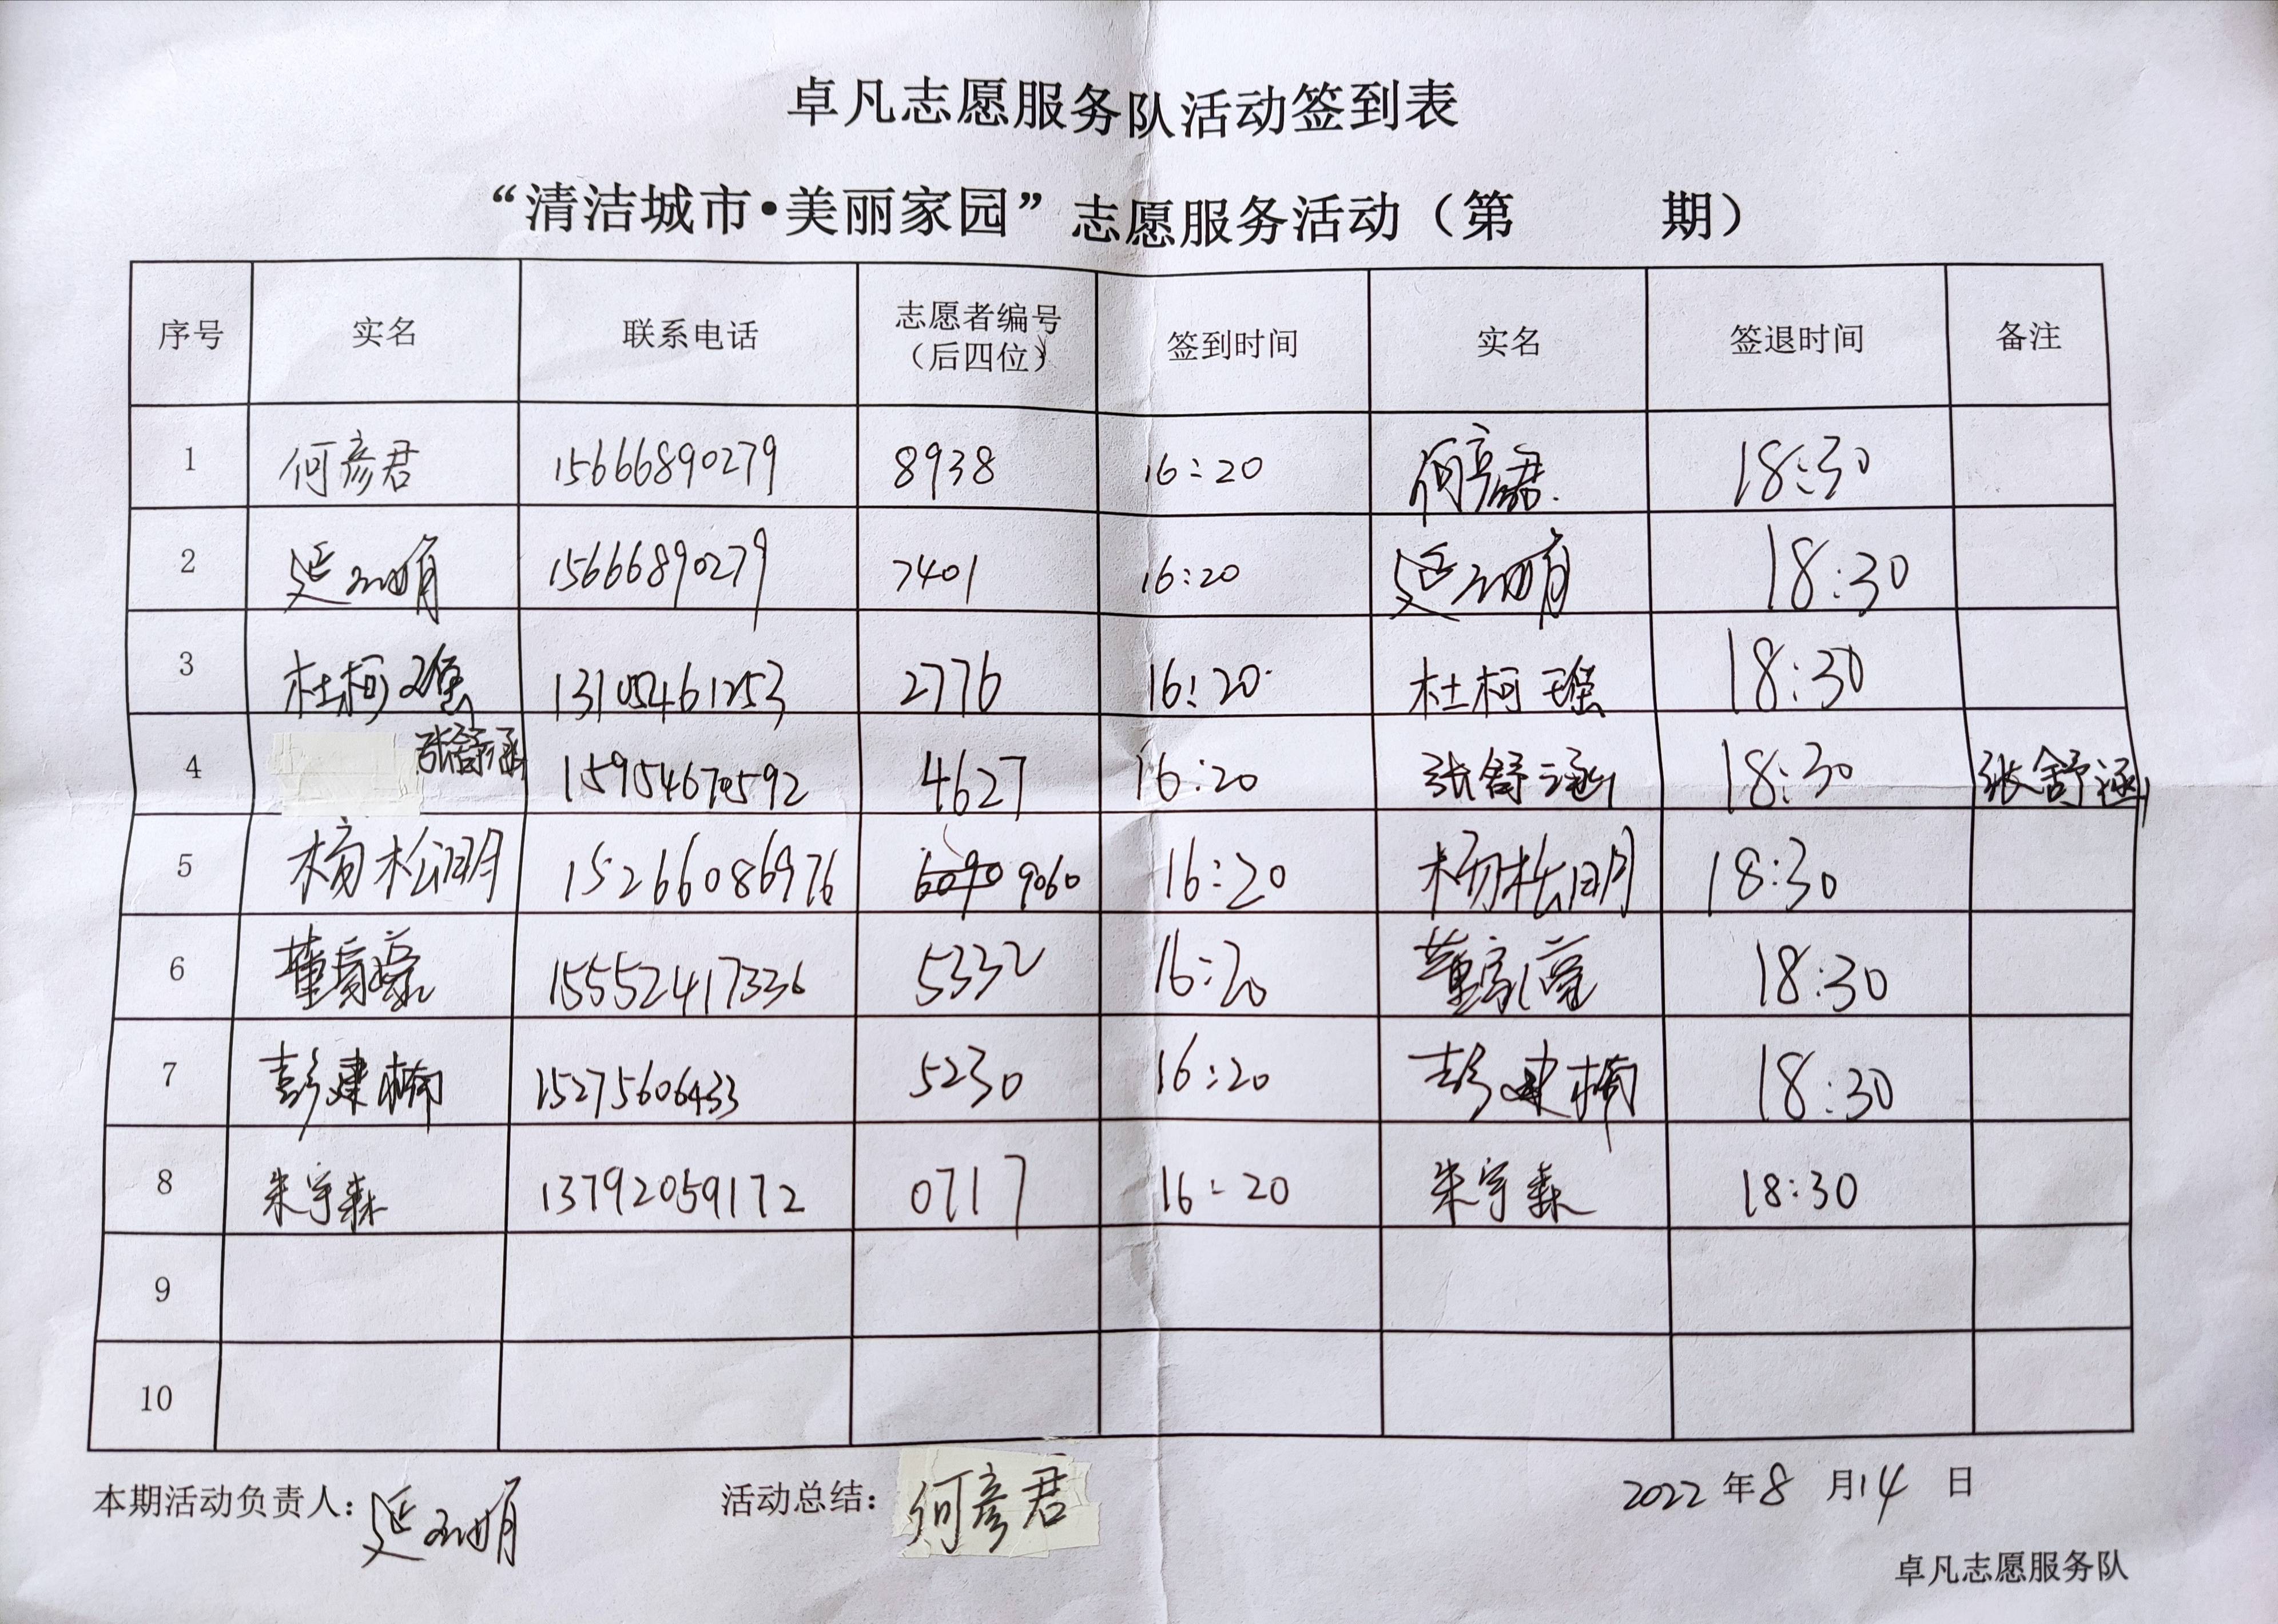 卓凡志愿服务队活动签到表
“清洁城市•美丽家园”志愿服务活动（第 期）
序号 实名 联系电话 志愿者编号（后四位） 签到时间 实名 签退时间 备注
1 何彦君 15666890279 8938 16:20 何彦君 18:30
2 15666890279 7401 16:20 18:30
3 杜柯瑶 2776 16:20 杜柯瑶 18:30
4 张舒涵 4627 16:20 张舒涵 18:30 张舒涵
5 杨松明 15266086976 9060 16:20 杨松明 18:30
6 15552417336 5332 16:20 18:30
7 彭建楠 15275606433 5230 16:20 彭建楠 18:30
8 朱宇森 13792059172 0717 16:20 朱宇森 18:30
9
10
本期活动负责人： 活动总结：何彦君 2022年8月14日
卓凡志愿服务队